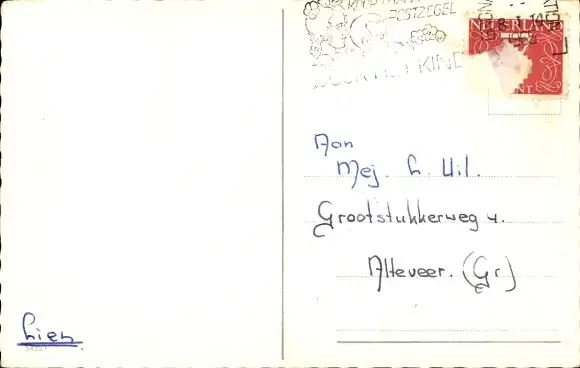 POSTZEGEL
KIND
NEDERLAND
Aan
Mej. L. Uil.
Grootstukkerweg 4.
Alteveer. (Gr)
Lien